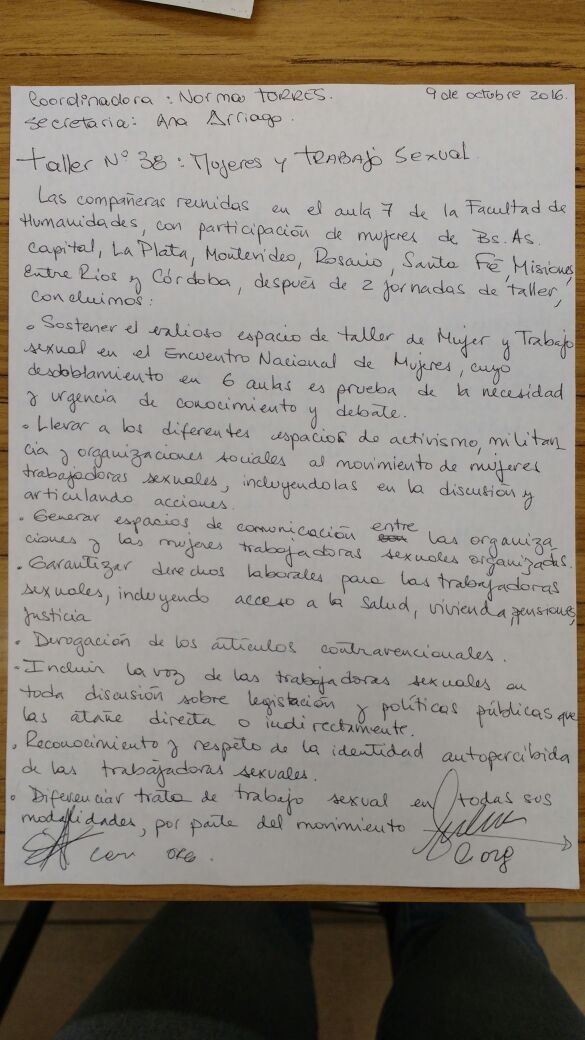 Coordinadora : Norma TORRES.
9 de octubre 2016.
Secretaria: Ana Arriago.
Taller Nº 38 : Mujeres y TRABAJO Sexual.
Las compañeras reunidas en el aula 7 de la Facultad de
Humanidades, con participación de mujeres de Bs. As.
Capital, La Plata, Montevideo, Rosario, Santa Fé, Misiones,
Entre Ríos y Córdoba, después de 2 jornadas de taller,
concluimos:
• Sostener el valioso espacio de taller de Mujer y Trabajo
sexual en el Encuentro Nacional de Mujeres, cuyo
desdoblamiento en 6 aulas es prueba de la necesidad
y urgencia de conocimiento y debate.
• Llevar a los diferentes espacios de activismo, militan
cia y organizaciones sociales al movimiento de mujeres
trabajadoras sexuales, incluyendolas en la discusión y
articulando acciones.
• Generar espacios de comunicación entre las organiza
ciones y las mujeres trabajadoras sexuales organizadas.
• Garantizar derechos laborales para las trabajadoras
sexuales, incluyendo acceso a la salud, vivienda, pensiones,
justicia
• Derogación de los artículos contravencionales.
• Incluir la voz de las trabajadoras sexuales en
toda discusión sobre legislación y políticas públicas que
las atañe directa o indirectamente.
• Reconocimiento y respeto de la identidad autopercibida
de las trabajadoras sexuales.
• Diferenciar trata de trabajo sexual en todas sus
modalidades, por parte del movimiento
ORG.
org